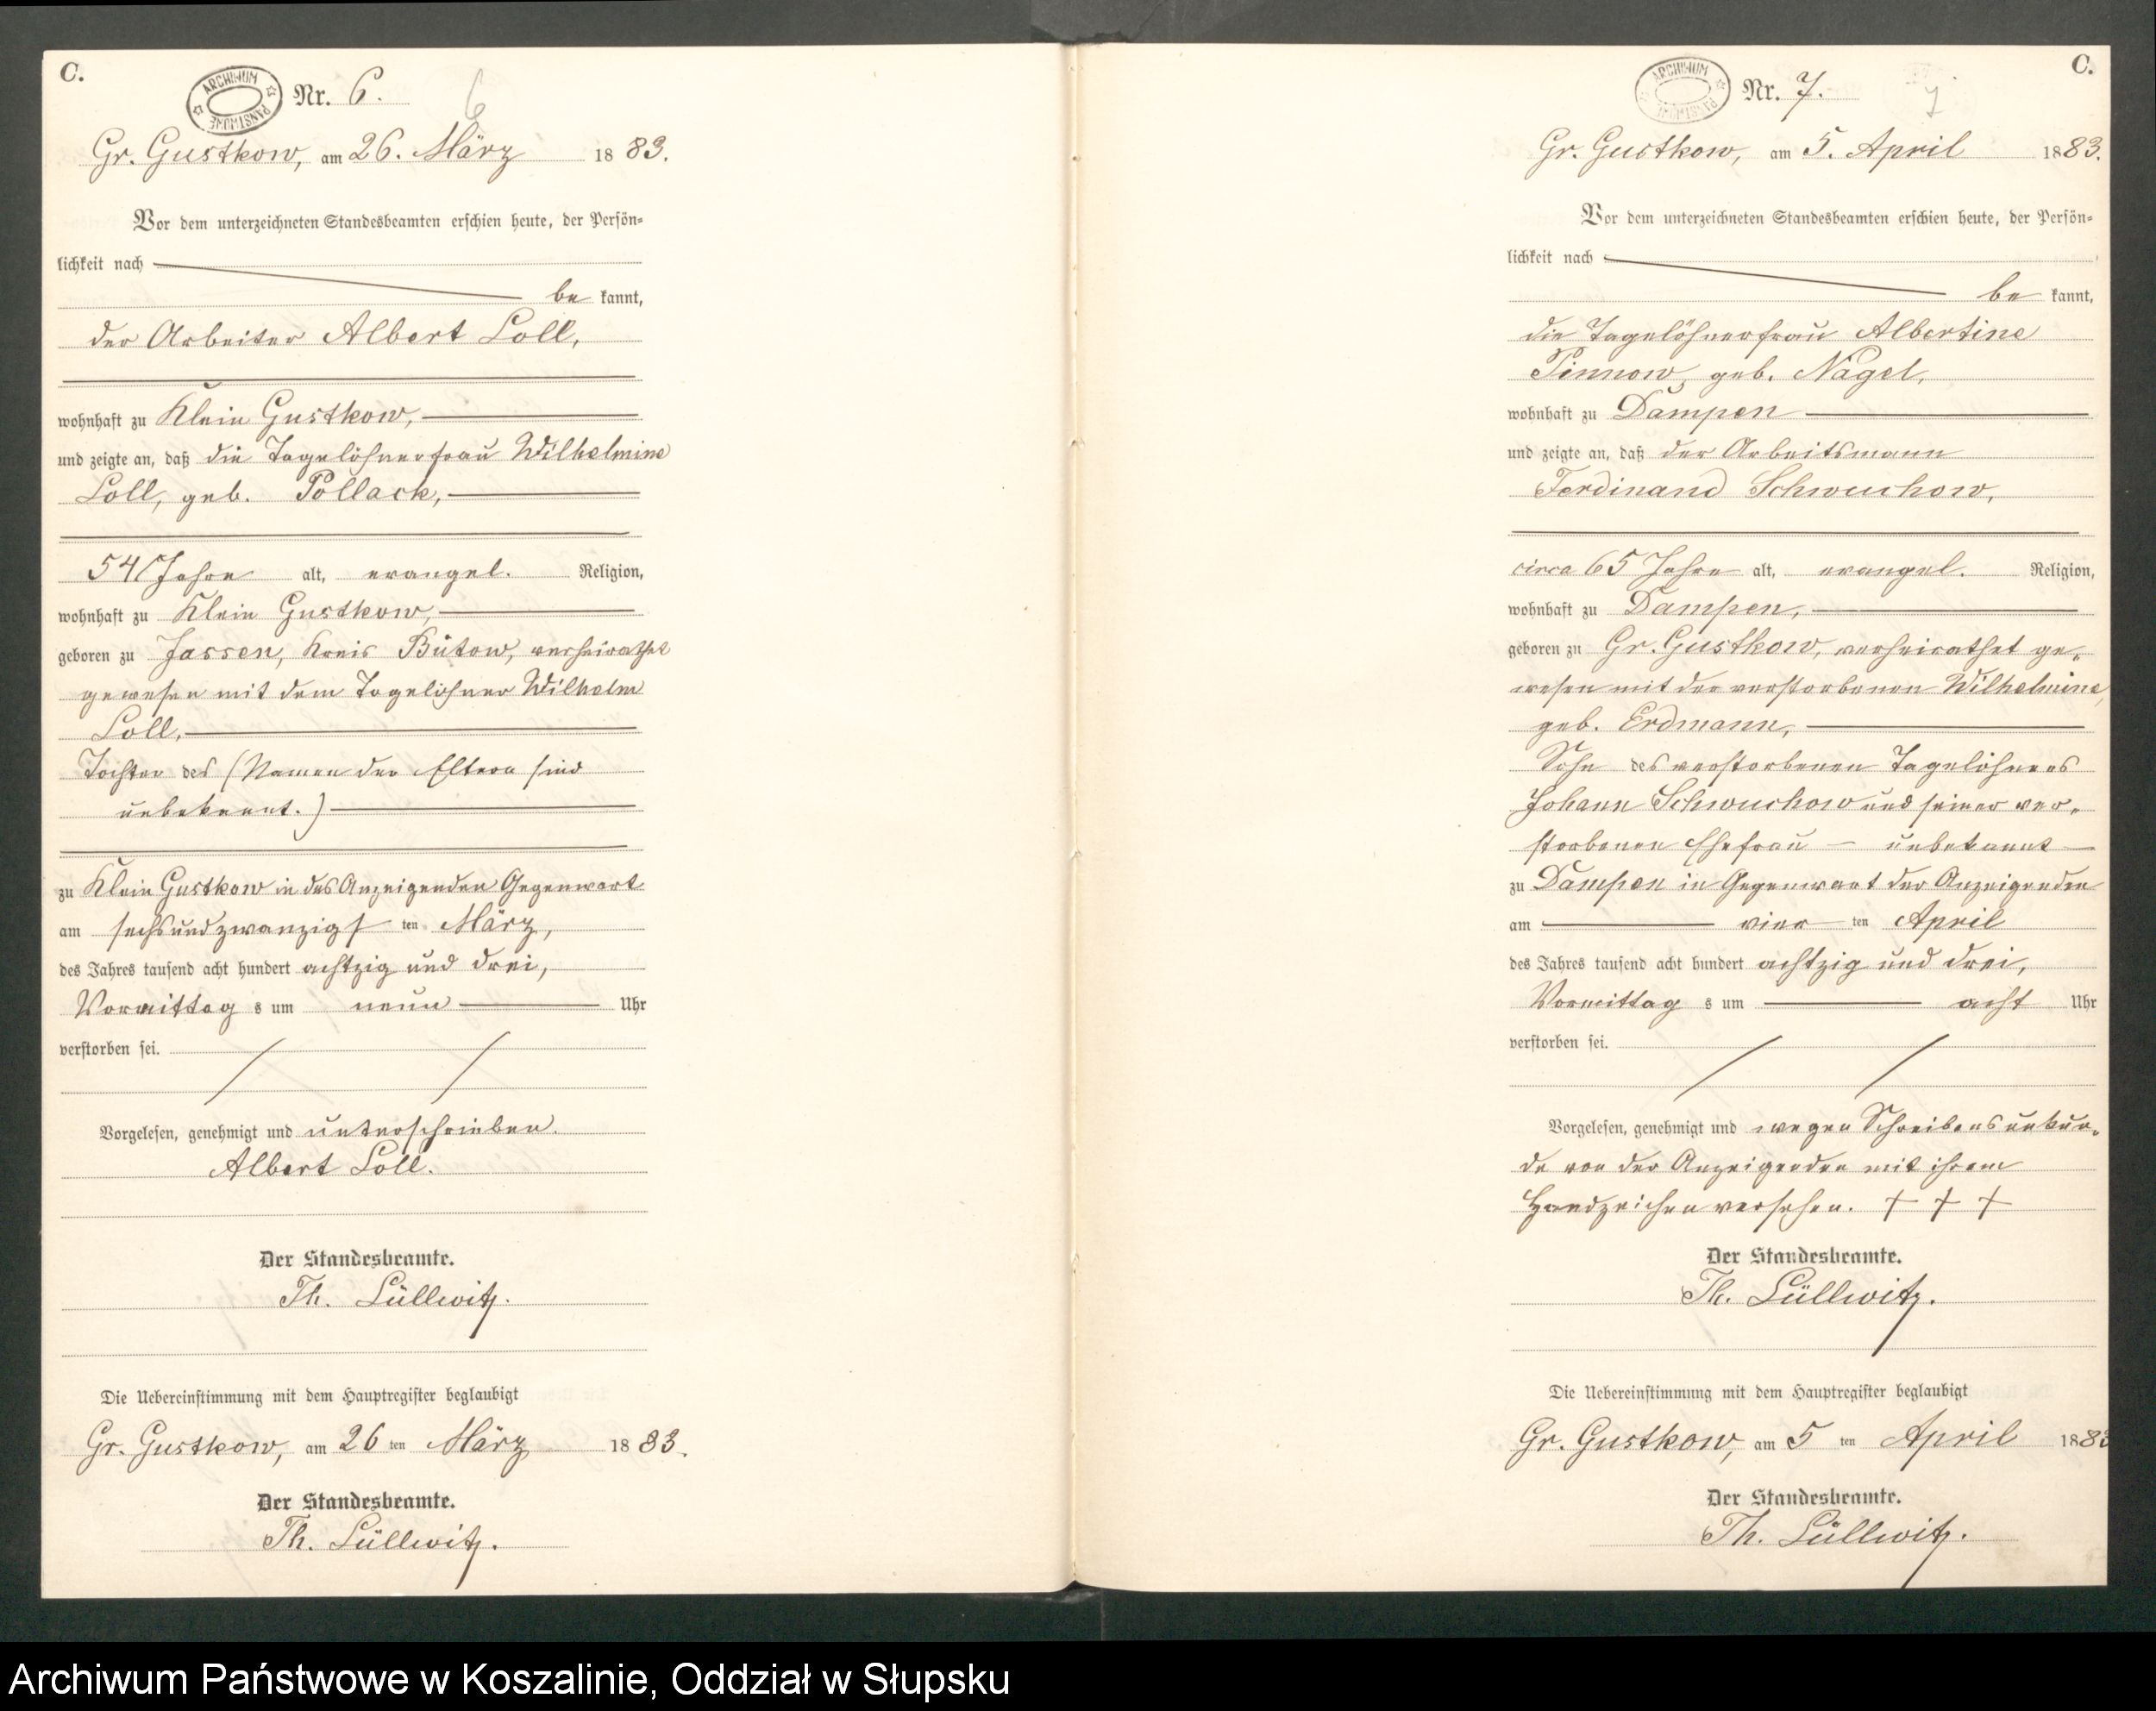 C.
ARCHIWUM PAŃSTWOWE
Nr. 6.
6
Gr. Gustkow, am 26. März 1883.
Vor dem unterzeichneten Standesbeamten erschien heute, der Persön-
lichkeit nach
be kannt,
der Arbeiter Albert Loll,
wohnhaft zu Klein Gustkow,
und zeigte an, daß die Tagelöhnerfrau Wilhelmine
Loll, geb. Pollack,
54 Jahre alt, evangel. Religion,
wohnhaft zu Klein Gustkow,
geboren zu Jassen, Kreis Bütow, verheirathet
gewesen mit dem Tagelöhner Wilhelm
Loll,
Tochter des (Namen der Eltern sind
unbekannt.)
zu Klein Gustkow in des Anzeigenden Gegenwart
am sechsundzwanzigsten März,
des Jahres tausend acht hundert achtzig und drei,
Vormittag s um neun Uhr
verstorben sei.
Vorgelesen, genehmigt und unterschrieben.
Albert Loll.
Der Standesbeamte.
Th. Lüllwitz.
Die Uebereinstimmung mit dem Hauptregister beglaubigt
Gr. Gustkow, am 26 ten März 1883.
Der Standesbeamte.
Th. Lüllwitz.
C.
ARCHIWUM PAŃSTWOWE
Nr. 7.
7
Gr. Gustkow, am 5. April 1883.
Vor dem unterzeichneten Standesbeamten erschien heute, der Persön-
lichkeit nach
be kannt,
die Tagelöhnerfrau Albertine
Pinnow, geb. Nagel,
wohnhaft zu Dampen
und zeigte an, daß der Arbeitsmann
Ferdinand Schwuchow,
circa 65 Jahre alt, evangel. Religion,
wohnhaft zu Dampen,
geboren zu Gr. Gustkow, verheirathet ge-
wesen mit der verstorbenen Wilhelmine,
geb. Erdmann,
Sohn des verstorbenen Tagelöhners
Johann Schwuchow und seiner ver-
storbenen Ehefrau – unbekannt –
zu Dampen in Gegenwart der Anzeigenden
am vier ten April
des Jahres tausend acht hundert achtzig und drei,
Vormittag s um acht Uhr
verstorben sei.
Vorgelesen, genehmigt und wegen Schreibensunkun-
de von der Anzeigenden mit ihrem
Handzeichen versehen. + + +
Der Standesbeamte.
Th. Lüllwitz.
Die Uebereinstimmung mit dem Hauptregister beglaubigt
Gr. Gustkow, am 5 ten April 1883
Der Standesbeamte.
Th. Lüllwitz.
Archiwum Państwowe w Koszalinie, Oddział w Słupsku